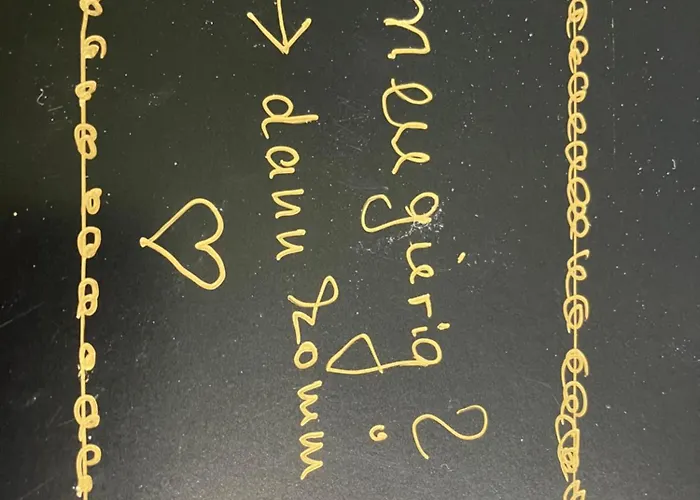 neugierig?
→ dann komm